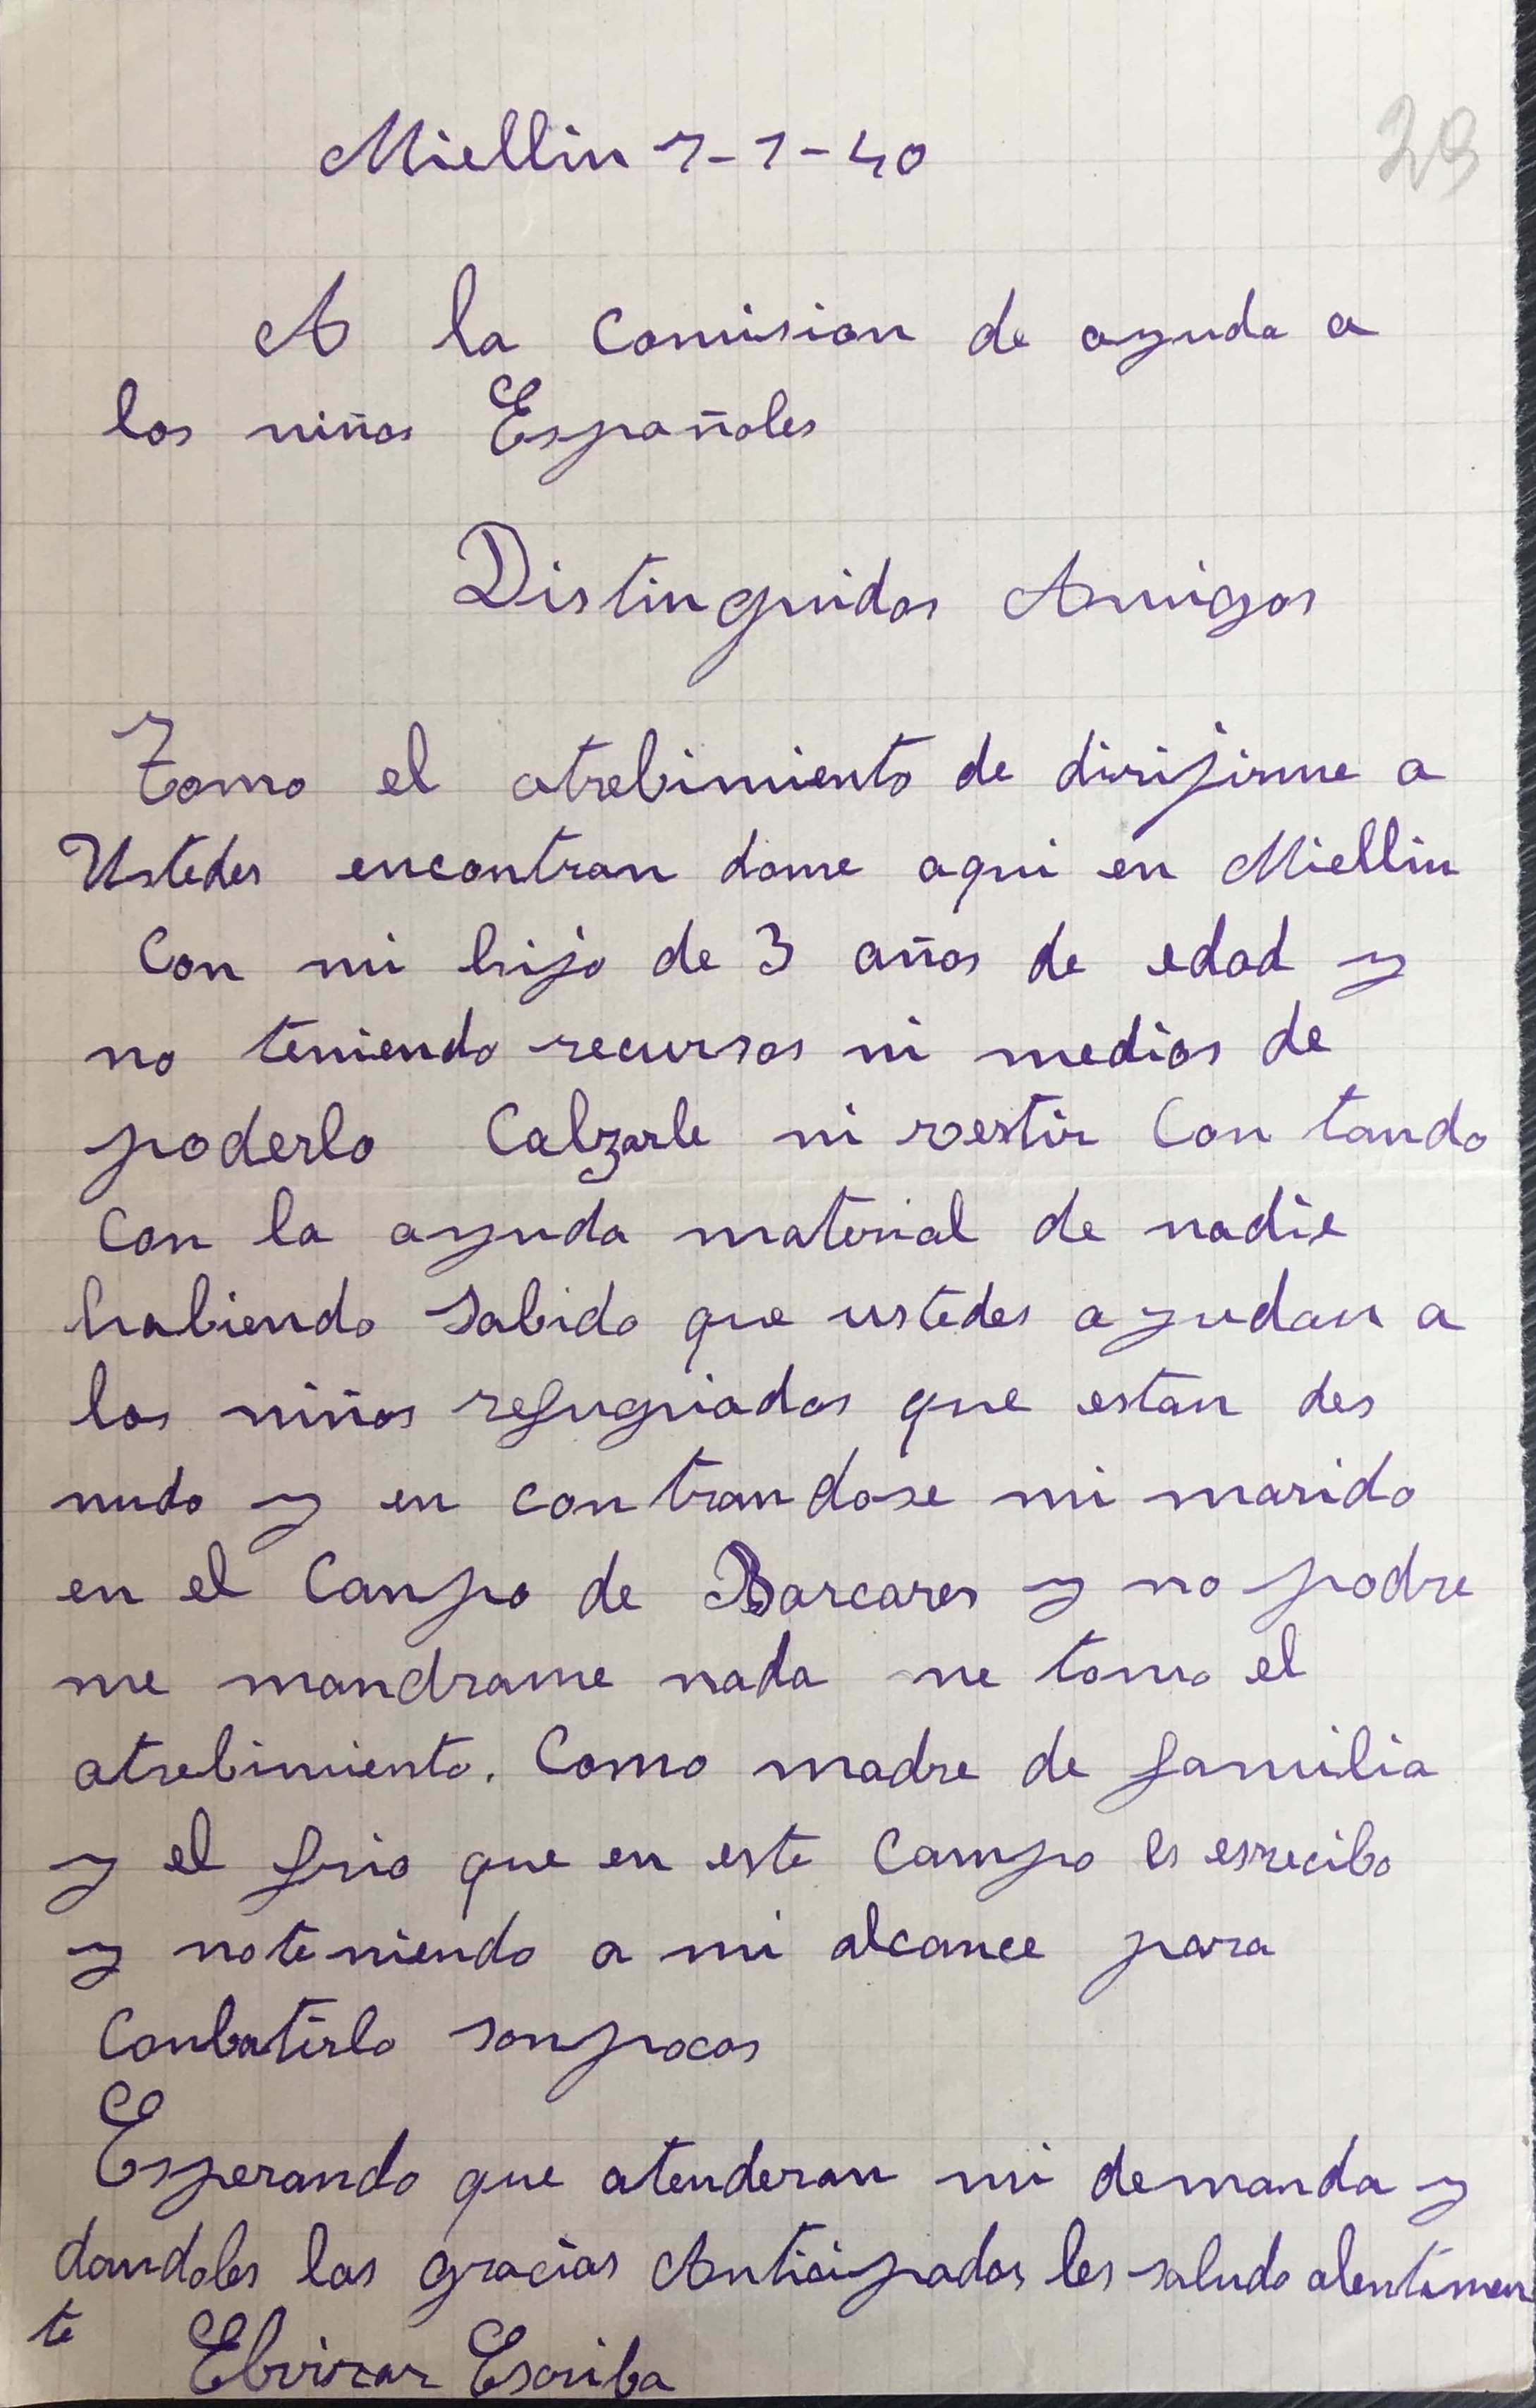 Miellin 7-1-40
29
A la Comision de ayuda a
los niños Españoles
Distinguidos Amigos
Tomo el atrebimiento de dirijirme a
Ustedes encontran dome aqui en Miellin
Con mi hijo de 3 años de edad y
no teniendo recursos ni medios de
poderlo Calzarle ni vestir Con tando
Con la ayuda material de nadie
habiendo Sabido que ustedes ayudan a
los niños refuguiados que estan des
nudo y en contrandose mi marido
en el Canpo de Barcares y no podre
me mandrame nada me tomo el
atrebimiento. Como madre de familia
y el frio que en este Campo es esrecibo
y noteniendo a mi alcance para
Conbatirlo sonpocos
Esperando que atenderan mi demanda y
dandoles las gracias Anticipadas les saludo atentamen
te Elvirar Escriba